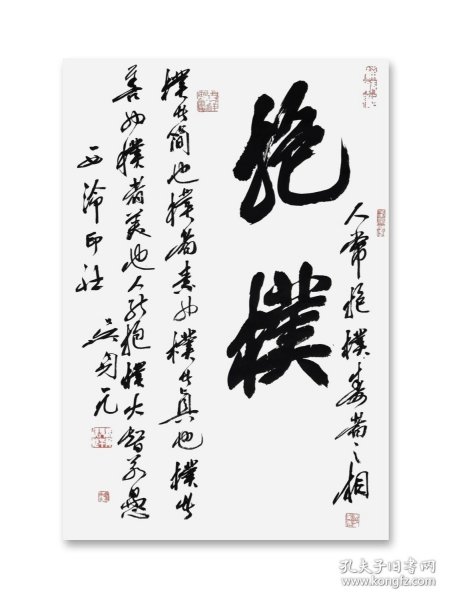 人常抱樸壽者之相
抱樸
樸者簡也樸者素也樸者真也樸者
善也樸者美也人能抱樸大智若愚
西泠印社
孔夫子旧书网
www.kongfz.com